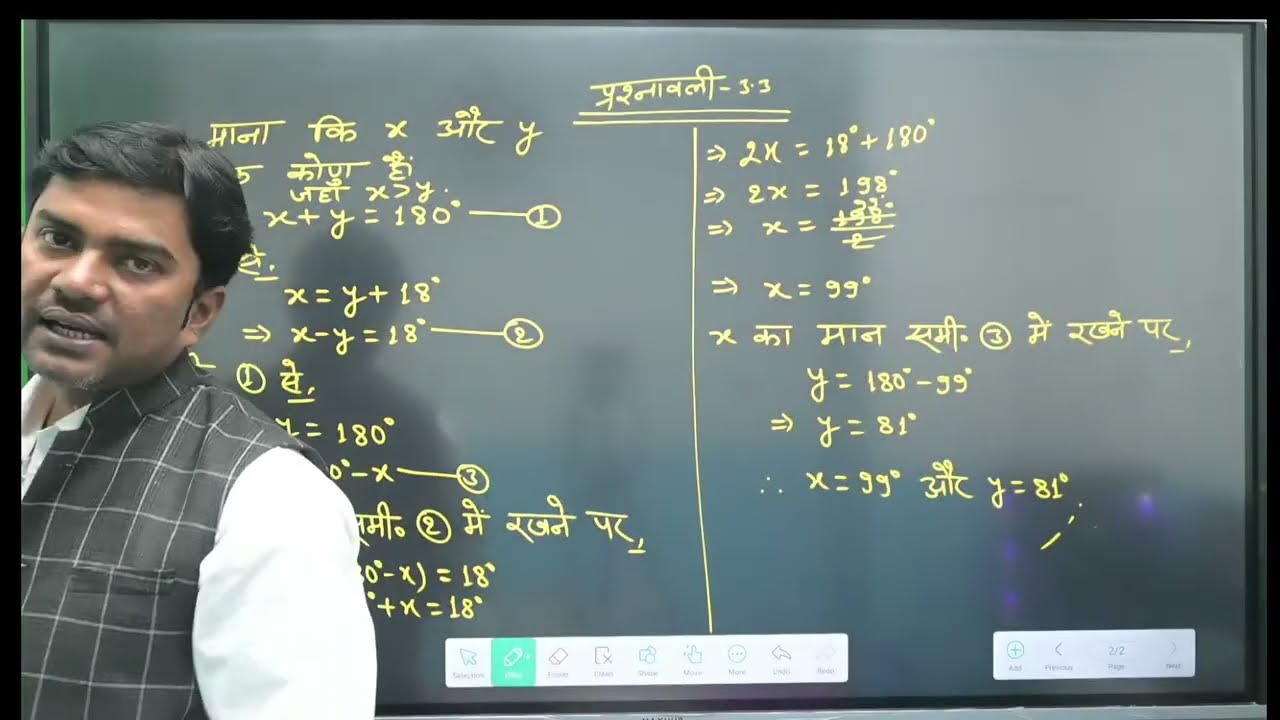 प्रश्नावली - 3.3
माना कि x और y
कोण हैं
जहाँ x > y.
x + y = 180° —— ①
से,
x = y + 18°
⇒ x - y = 18° —— ②
① से,
y = 180°
0° - x —— ③
समी॰ ② में रखने पर,
0° - x) = 18°
° + x = 18°
⇒ 2x = 18° + 180°
⇒ 2x = 198°
⇒ x = 198° / 2
⇒ x = 99°
x का मान समी॰ ③ में रखने पर,
y = 180° - 99°
⇒ y = 81°
∴ x = 99° और y = 81°
Selection Eraser Shape Move More Undo Redo
Add Previous 2/2 Page Next